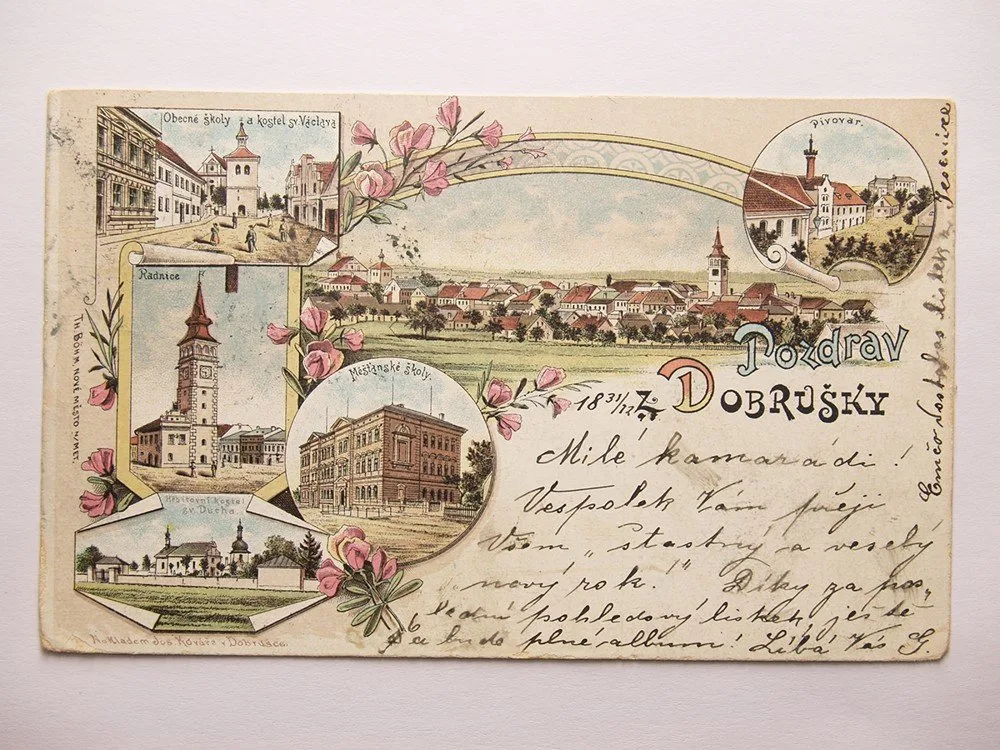 Obecné školy a kostel sv. Václava
Pivovar.
Radnice
Měšťanské školy.
Hřbitovní kostel
sv. Ducha.
TH. BÖHM, NOVÉ MĚSTO N/MET.
Nákladem Jos. Kováře v Dobrušce.
Pozdrav
z Dobrušky
18 31/12
Milé kamarádi!
Vespolek Vám přeji
Všem „šťastný a veselý
nový rok.“ Díky za pos„
lední pohledový lístek, ješ„tě
6 a bude plné album! Líbá Vás G.